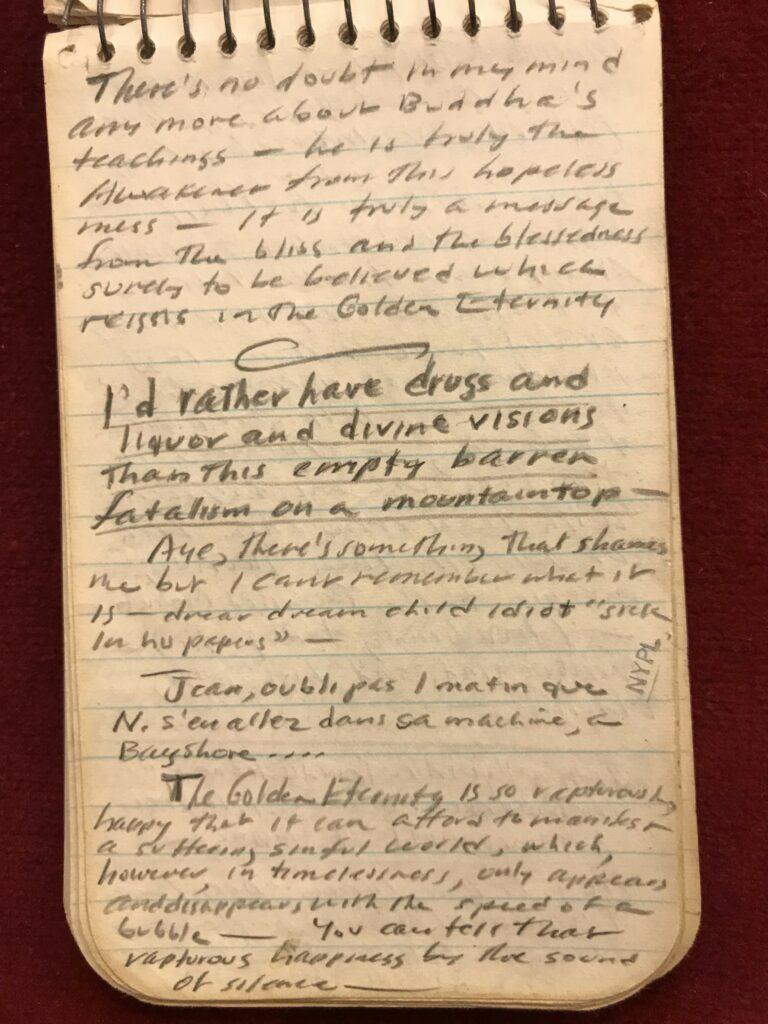 There's no doubt in my mind
any more about Buddha's
teachings — he is truly the
Awakener from this hopeless
mess — It is truly a message
from the bliss and the blessedness
surely to be believed which
reigns in the Golden Eternity
I'd rather have drugs and
liquor and divine visions
than this empty barren
fatalism on a mountaintop —
Aye, there's something that shames
me but I can't remember what it
is — drear dream child idiot "sick
in his papers" —
Jean, oubli pas l matin que
N. s'en allez dans sa machine, a
Bayshore ....
NYPL
The Golden Eternity is so rapturously
happy that it can afford to manifest
a suffering sinful world, which,
however, in timelessness, only appears
and disappears with the speed of a
bubble — You can tell that
rapturous happiness by the sound
of silence —